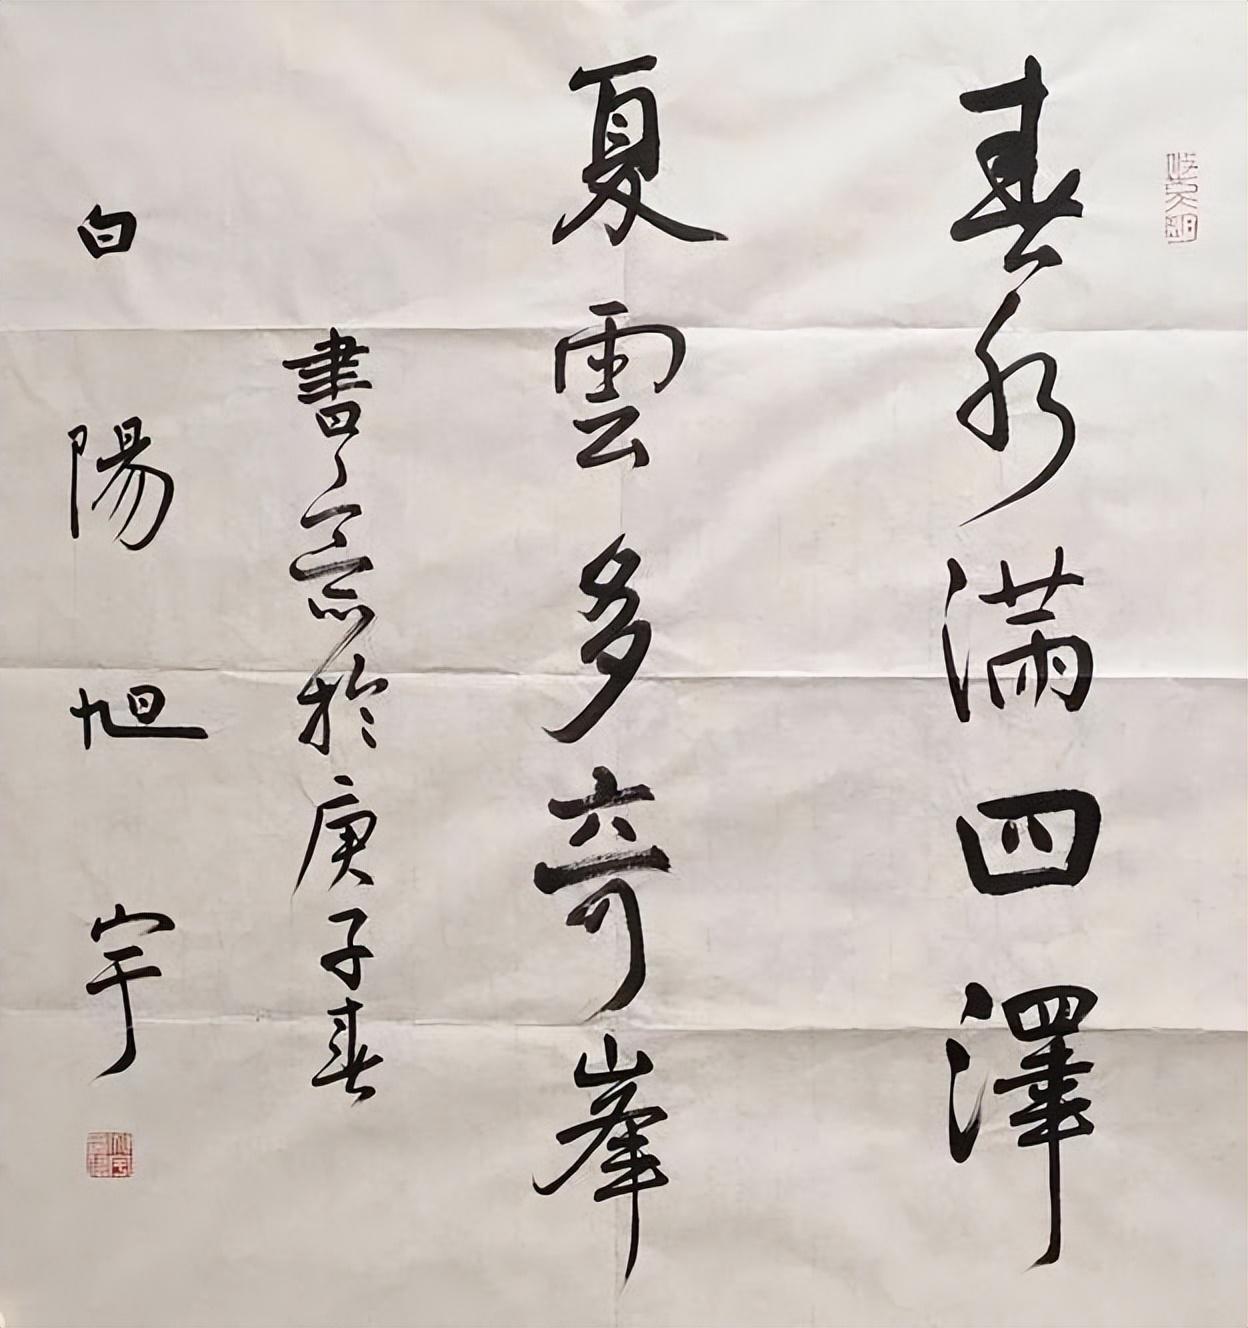 春水滿四澤
夏雲多奇峯
書於庚子春
白陽旭宇